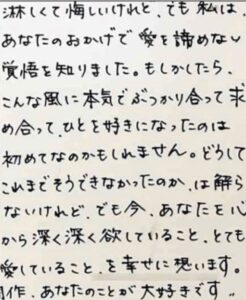 淋しくて悔しいけれど、でも私は
あなたのおかげで愛を諦めない
覚悟を知りました。もしかしたら、
こんな風に本気でぶつかり合って求
め合って、ひとを好きになったのは
初めてなのかもしれません。どうして
これまでそうできなかったのか、は解ら
ないけれど、でも今、あなたを心
から深く深く欲していること、とても
愛していること、を幸せに想います。
作、あなたのことが大好きです。